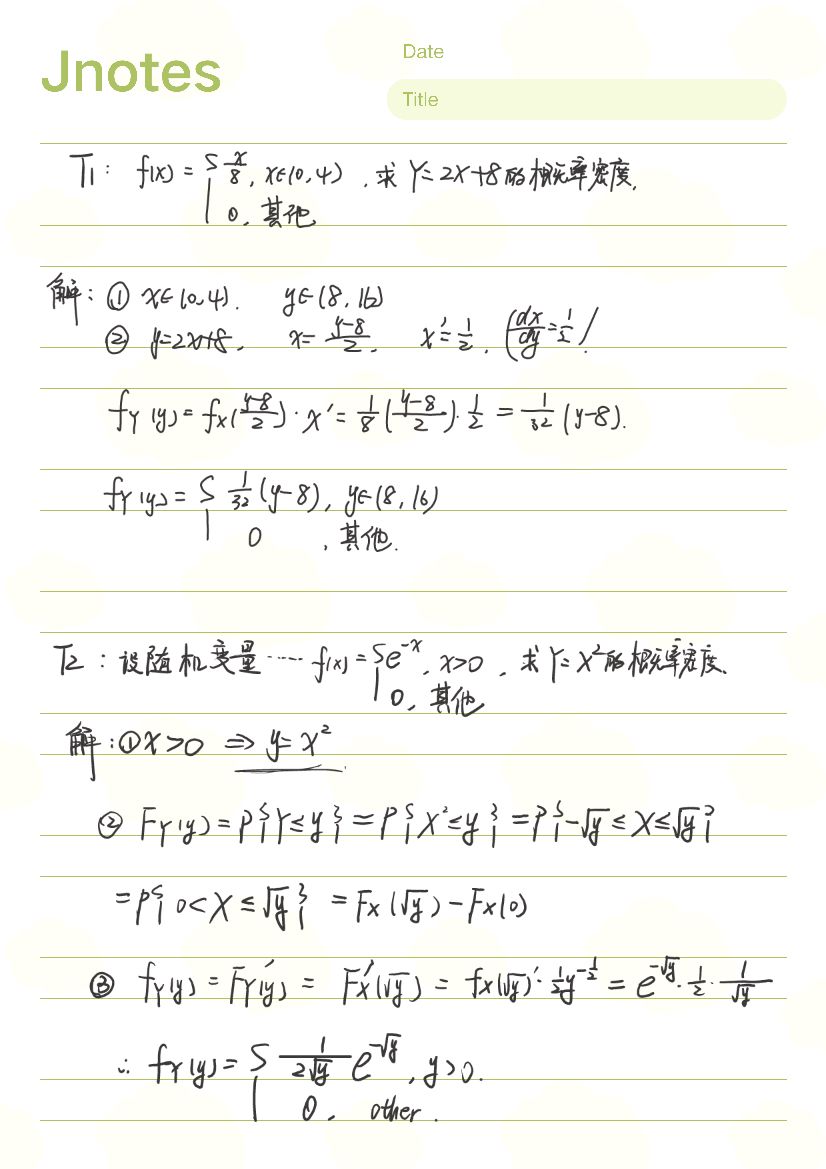 Jnotes
Date
Title
T1: f(x) = { x/8, x∈(0,4) , 求 Y=2X+8的概率密度.
0, 其他
解: ① x∈(0,4). y∈(8,16)
② y=2x+8, x= (y-8)/2, x'=1/2, (dx/dy=1/2)
f_Y(y) = f_X((y-8)/2)·x' = 1/8((y-8)/2)·1/2 = 1/32(y-8).
f_Y(y) = { 1/32(y-8), y∈(8,16)
0 , 其他.
T2: 设随机变量······ f(x) = { e^{-x}, x>0 , 求 Y=X²的概率密度.
0, 其他
解: ① x>0 ⇒ y=x²
② F_Y(y) = P{Y≤y} = P{X²≤y} = P{-√y≤X≤√y}
=P{0<X≤√y} = F_X(√y)-F_X(0)
③ f_Y(y) = F_Y'(y) = F_X'(√y) = f_X(√y)'·1/2y^{-1/2} = e^{-√y}·1/2·1/√y
∴ f_Y(y) = { 1/(2√y) e^{-√y}, y>0.
0, other.